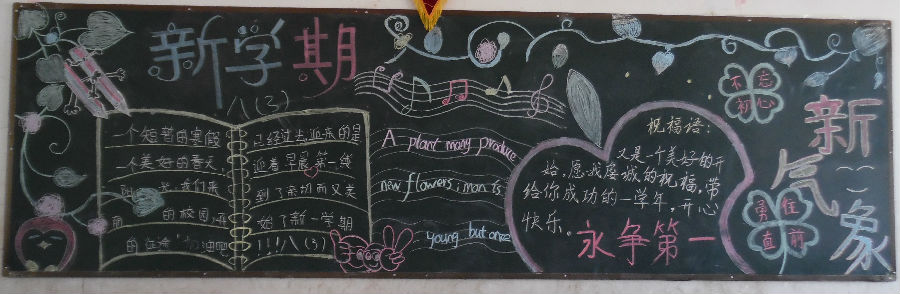 新学期
八(3)
一个短暂的寒假
一个美好的春天
我们来
的校园
的
已经过去迎来的是
迎着早晨第一线
到了亲切而又美
始了新一学期
!!!八(3)
A plant many produce
new flowers; man is
young but once
祝福语:
又是一个美好的开
始,愿我虔诚的祝福,带
给你成功的一学年,开心
快乐。
永争第一
不忘
初心
勇往
直前
新气象